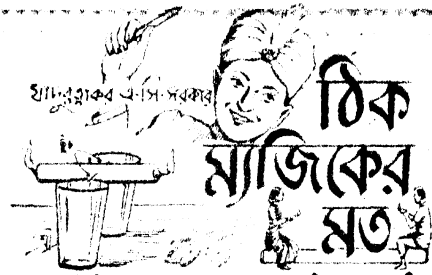 যাদুরত্নাকর এ.সি.সরকার
ঠিক
ম্যাজিকের
মত